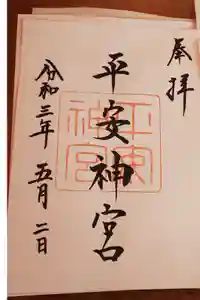 奉拝
平安神宮
令和三年 五月 二日
平安神宮